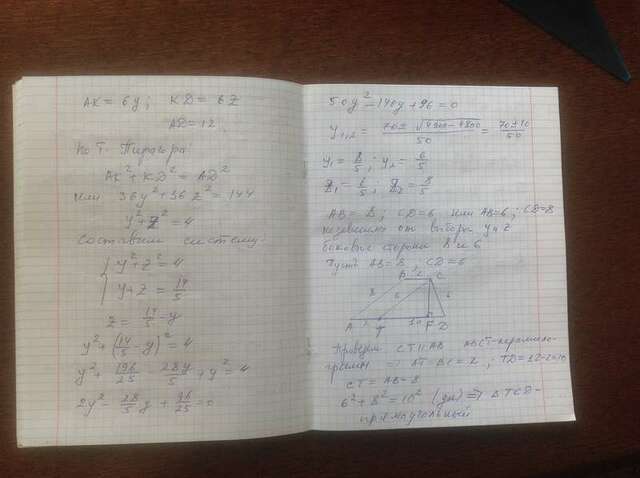 AK = 6y ; KD = 6z
AD = 12
По т. Пифагора
AK² + KD² = AD²
или 36y² + 36z² = 144
y² + z² = 4
Составим систему:
{ y² + z² = 4
y + z = 14/5
z = 14/5 - y
y² + (14/5 - y)² = 4
y² + 196/25 - 28y/5 + y² = 4
2y² - 28/5 y + 96/25 = 0
50y² - 140y + 96 = 0
y₁,₂ = (70 ± √(4900 - 4800))/50 = (70 ± 10)/50
y₁ = 8/5 ; y₂ = 6/5
z₁ = 6/5 ; z₂ = 8/5
AB = 8 ; CD = 6 или AB = 6 ; CD = 8
независимо от выбора y и z
боковые стороны 8 и 6
Пусть AB = 8 ; CD = 6
B 2 C
8 8 6
A 2 T 10 F D
Проверим CT || AB ABCT - параллело-
грамм ⇒ AT = BC = 2 ; TD = 12 - 2 = 10
CT = AB = 8
6² + 8² = 10² (да) ⇒ Δ TCD -
прямоугольный